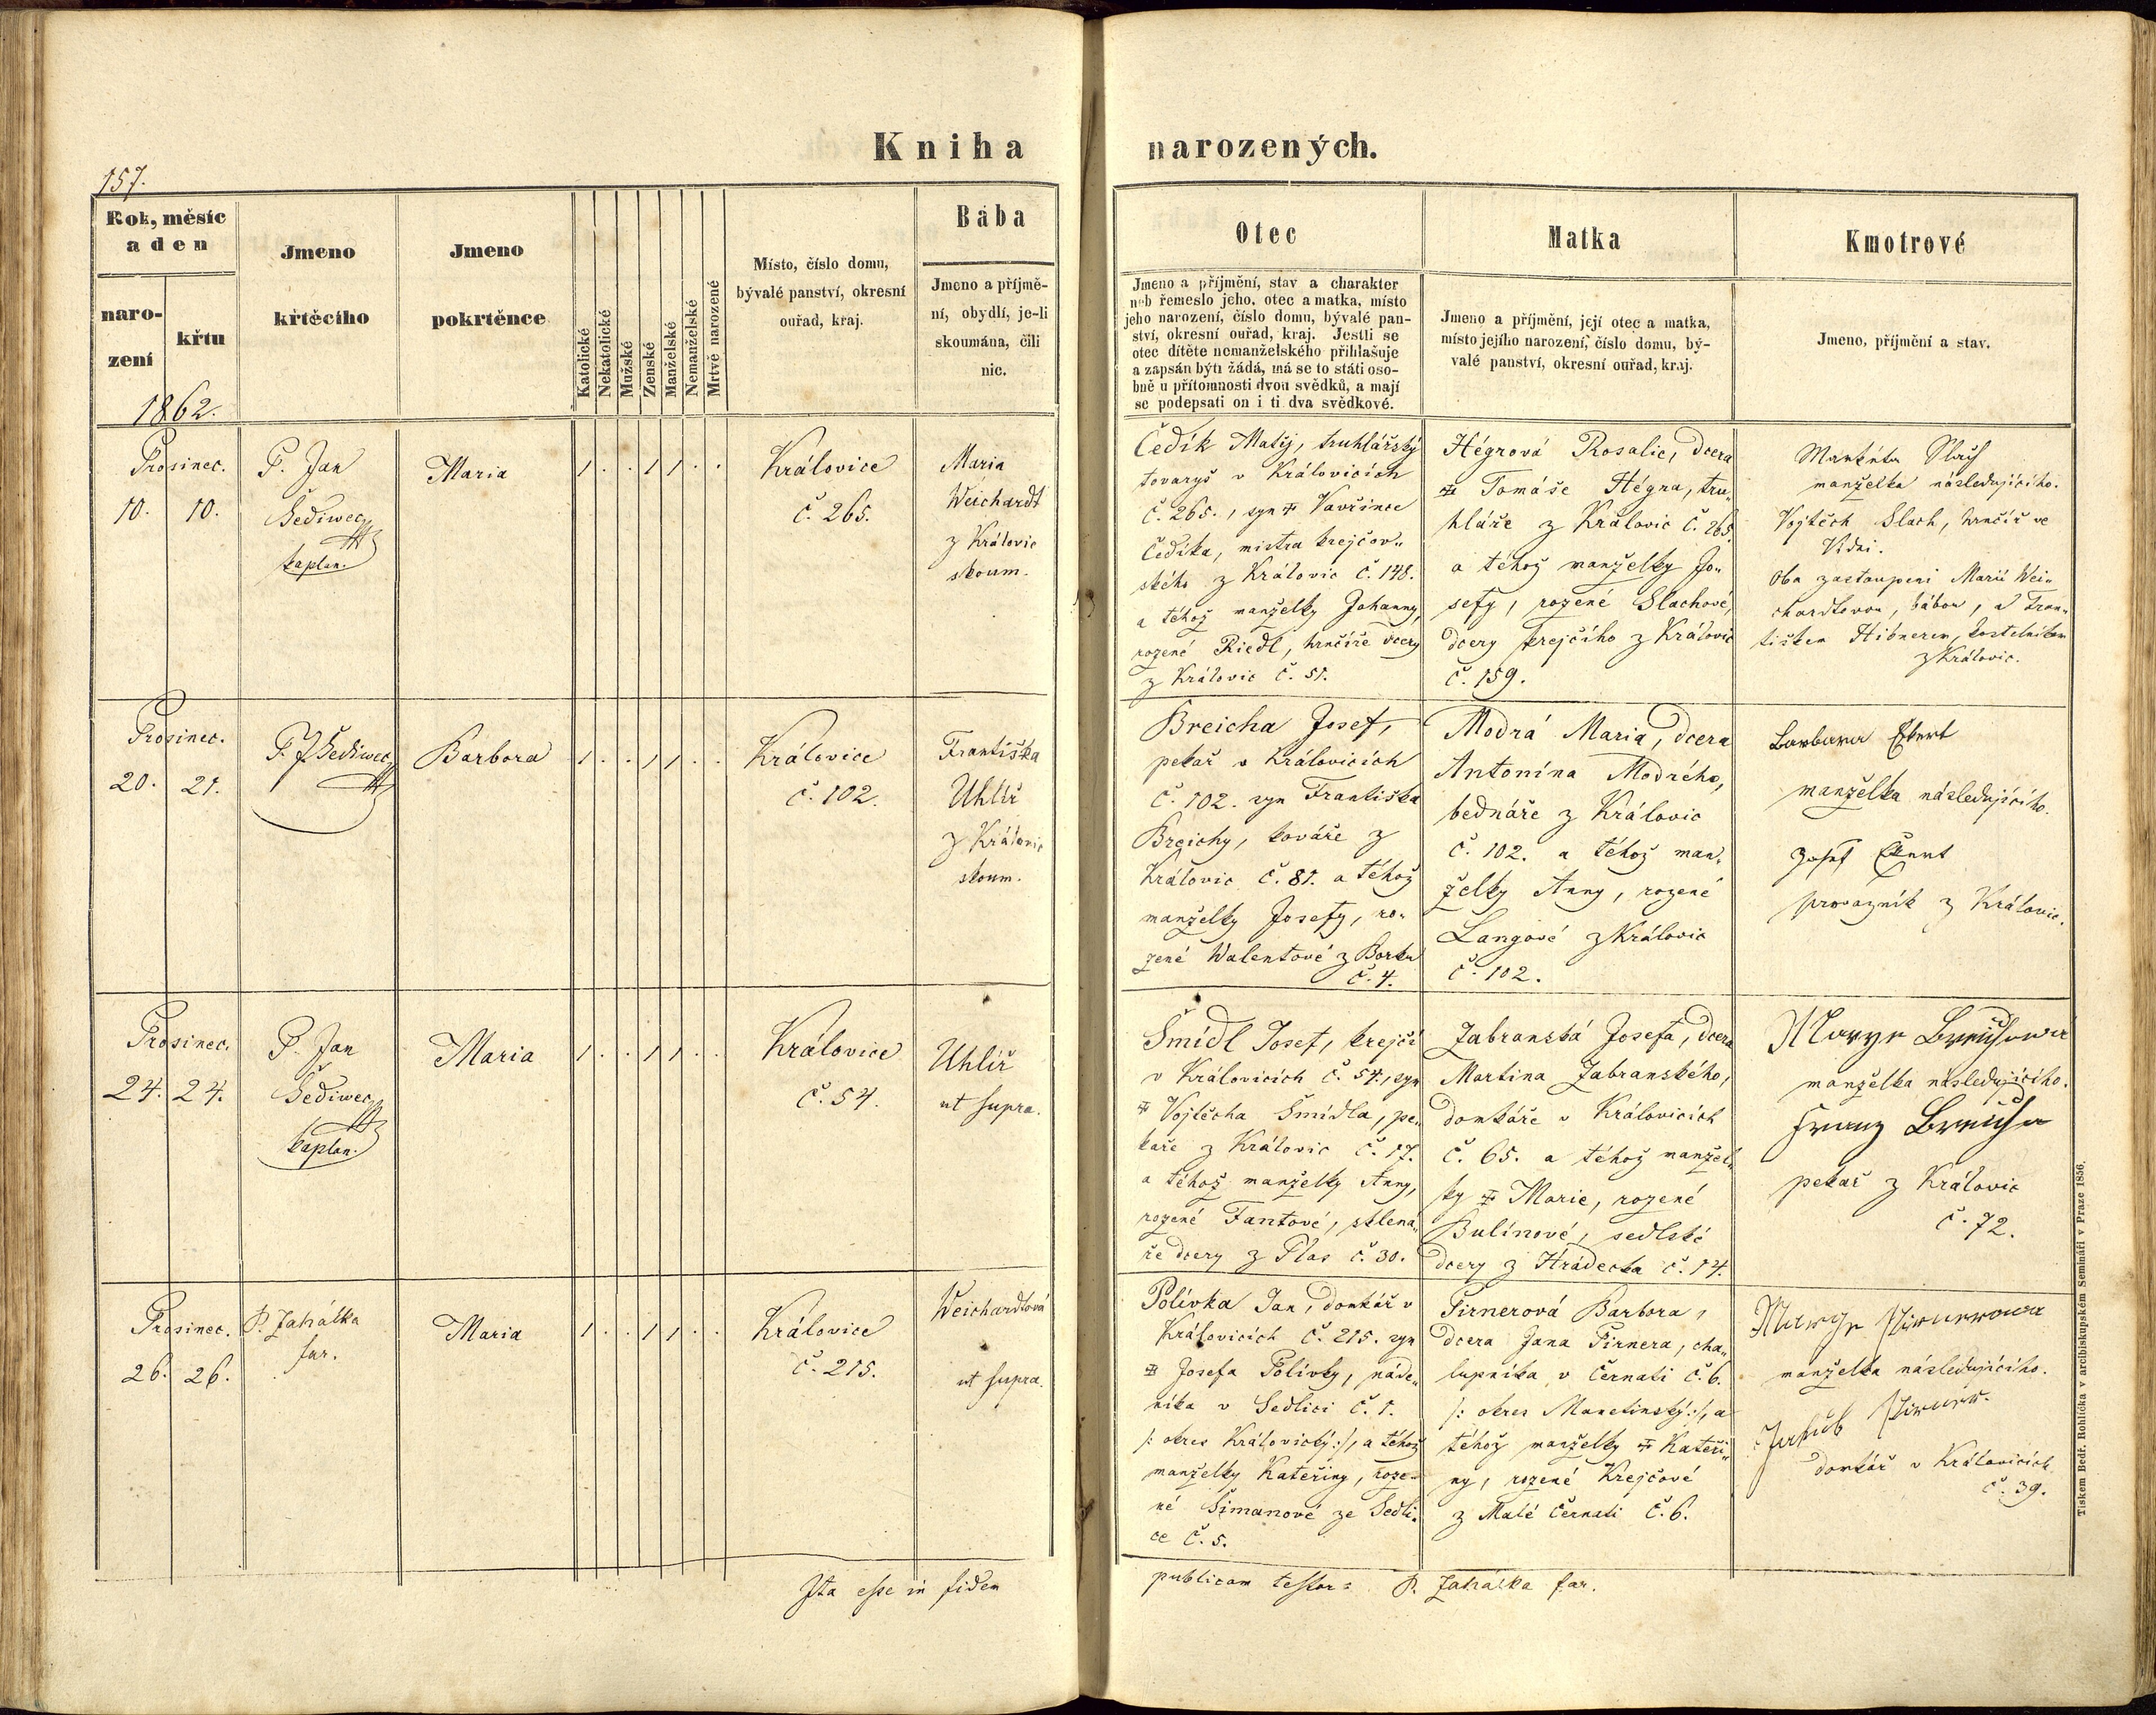 Kniha narozených.
157.
Rok, měsíc
a den
naro-
zení
křtu
Jmeno
křtěcího
Jmeno
pokrtěnce
Katolické
Nekatolické
Mužské
Ženské
Manželské
Nemanželské
Mrtvě narozené
Místo, číslo domu,
bývalé panství, okresní
ouřad, kraj.
Bába
Jmeno a příjmě-
ní, obydlí, je-li
skoumána, čili
nic.
Otec
Jmeno a příjmění, stav a charakter
neb řemeslo jeho, otec a matka, místo
jeho narození, číslo domu, bývalé pan-
ství, okresní ouřad, kraj. Jestli se
otec dítěte nemanželského přihlašuje
a zapsán býti žádá, má se to státi oso-
bně u přítomnosti dvou svědků, a mají
se podepsati on i ti dva svědkové.
Matka
Jmeno a příjmění, její otec a matka,
místo jejího narození, číslo domu, bý-
valé panství, okresní ouřad, kraj.
Kmotrové
Jmeno, příjmění a stav.
1862.
Prosinec.
10. 10.
P. Jan
Šediwec
kaplan.
Maria
1 . . 1 1 . .
Královice
č. 265.
Maria
Weichardt
z Královic
skoum.
Čedík Matěj, truhlářský
tovaryš v Královicích
č. 265., syn ✠ Vavřince
Čedíka, mistra krejčov-
ského z Královic č. 148.
a téhož manželky Johanny,
rozené Riedl, hrnčíře dcery
z Královic č. 51.
Hégrová Rosalie, dcera
✠ Tomáše Hégra, tru-
hláře z Královic č. 265.
a téhož manželky Jo-
sefy, rozené Slachové,
dcery krejčího z Královic
č. 159.
Markéta Slach
manželka následujícího.
Vojtěch Slach, hrnčíř ve
oba zastoupeni Marií Wei-
chardtovou, bábou, a Fran-
tiškem Hibnerem, kostelníkem
z Královic.
Prosinec.
20. 21.
P. J. Šediwec
Barbora
1 . . 1 1 . .
Královice
č. 102.
Františka
Uhlíř
z Královic
skoum.
Breicha Josef,
pekař v Královicích
č. 102. syn Františka
Breichy, kováře z
Královic č. 81. a téhož
manželky Josefy, ro-
zené Walentové z Borku
č. 4.
Modrá Maria, dcera
Antonína Modrého,
bednáře z Královic
č. 102. a téhož man-
želky Anny, rozené
Langové z Královic
č. 102.
Barbara Ekert
manželka následujícího.
Josef Ekert
provazník z Královic.
Prosinec.
24. 24.
P. Jan
Šediwec
kaplan.
Maria
1 . . 1 1 . .
Královice
č. 54.
Uhlíř
ut supra.
Šmídl Josef, krejčí
v Královicích č. 54., syn
✠ Vojtěcha Šmídla, pe-
kaře z Královic č. 17.
a téhož manželky Anny,
rozené Fantové, sklená-
ře dcery z Plas č. 30.
Zabranská Josefa, dcera
Martina Zabranského,
domkáře v Královicích
č. 65. a téhož manžel-
ky ✠ Marie, rozené
Bulínové, sedlské
dcery z Hrádecka č. 14.
Marye Breichowa
manželka následujícího.
Franz Breicha
pekař z Královic
č. 72.
Prosinec.
26. 26.
P. Zahálka
far.
Maria
1 . . 1 1 . .
Královice
č. 215.
Weichardtová
ut supra.
Polívka Jan, domkář v
Královicích č. 215. syn
✠ Josefa Polívky, náde-
níka v Sedlici č. 1.
/: okres Královický :/, a téhož
manželky Kateřiny, roze-
né Šimanové ze Sedli-
ce č. 5.
Pirnerová Barbora,
dcera Jana Pirnera, cha-
lupníka v Černati č. 6.
/: okres Manetinský :/, a
téhož manželky ✠ Kateři-
ny, rozené Krejčové
z Malé Černati č. 6.
manželka následujícího.
Jakub
domkář v Královicích
č. 39.
Ita esse in fidem publicam testor: P. Zahálka far.
Tiskem Bedř. Rohlíčka v arcibiskupském Semináři v Praze 1856.